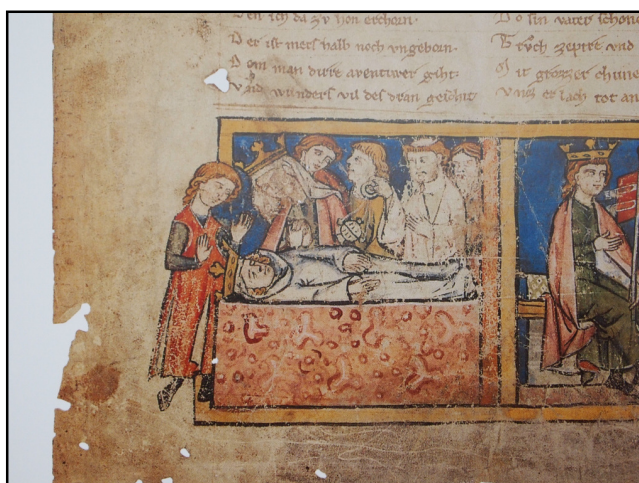 Den ich da zv hon erchorn·
Der ist mers halb noch vngeborn·
Dem man dirre aventiwer giht·
Vnd wunders vil des dran geschiht·
Do sin vater schone
Trvch zeptre vnd
Mit grozzer chun
Vntz er lach tot an